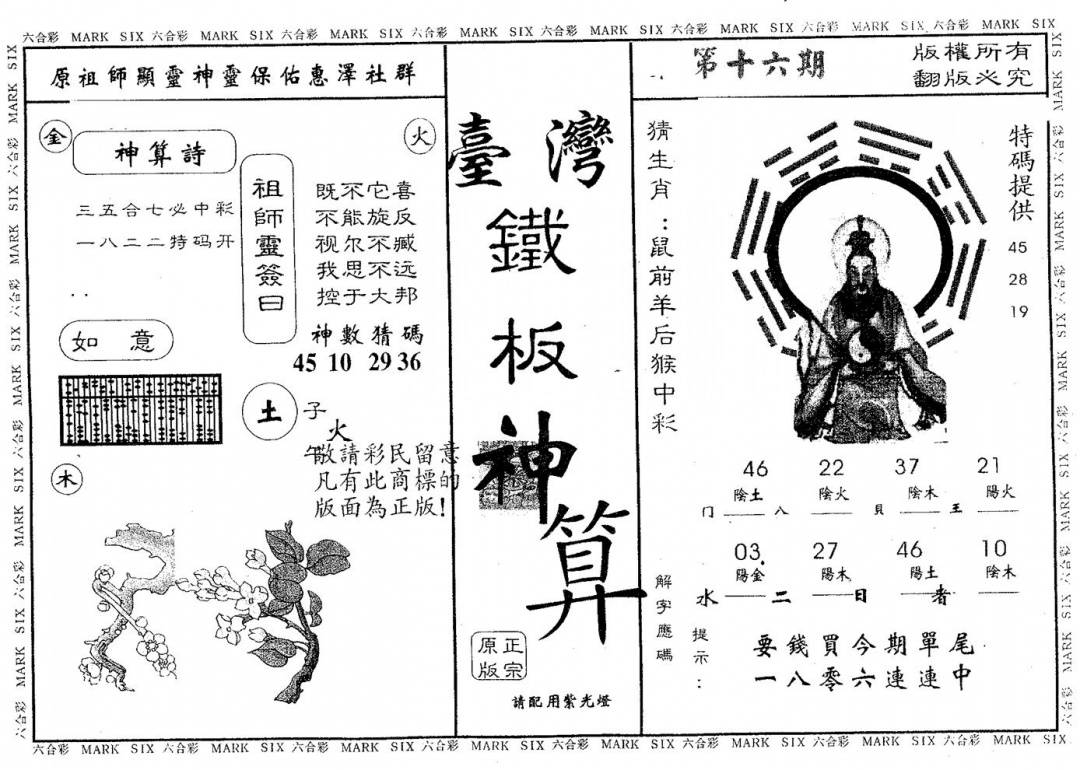 六合彩 MARK SIX 六合彩 MARK SIX 六合彩 MARK SIX 六合彩 MARK SIX 六合彩 MARK SIX 六合彩 MARK SIX 六合彩 MARK SIX 六合彩 MARK SIX
原祖師顯靈神靈保佑惠澤社群
金
神算詩
火
三五合七必中彩
一八二二特码开
祖師靈簽曰
既不它喜
不能旋反
视尔不臧
我思不远
控于大邦
神數猜碼
45 10 29 36
如意
土
子
火
午
木
敬請彩民留意
凡有此商標的
版面為正版!
臺灣
鐵板神算
正宗原版
請配用紫光燈
第十六期
版權所有
翻版必究
猜生肖：鼠前羊后猴中彩
特碼提供
45
28
19
46 22 37 21
陰土 陰火 陰木 陽火
门 八 貝 王
03 27 46 10
陽金 陽木 陽土 陰木
水 二 日 者
解字應碼
提示：
要錢買今期單尾
一八零六連連中
六合彩 MARK SIX 六合彩 MARK SIX 六合彩 MARK SIX 六合彩 MARK SIX 六合彩 MARK SIX 六合彩 MARK SIX 六合彩 MARK SIX 六合彩 MARK SIX